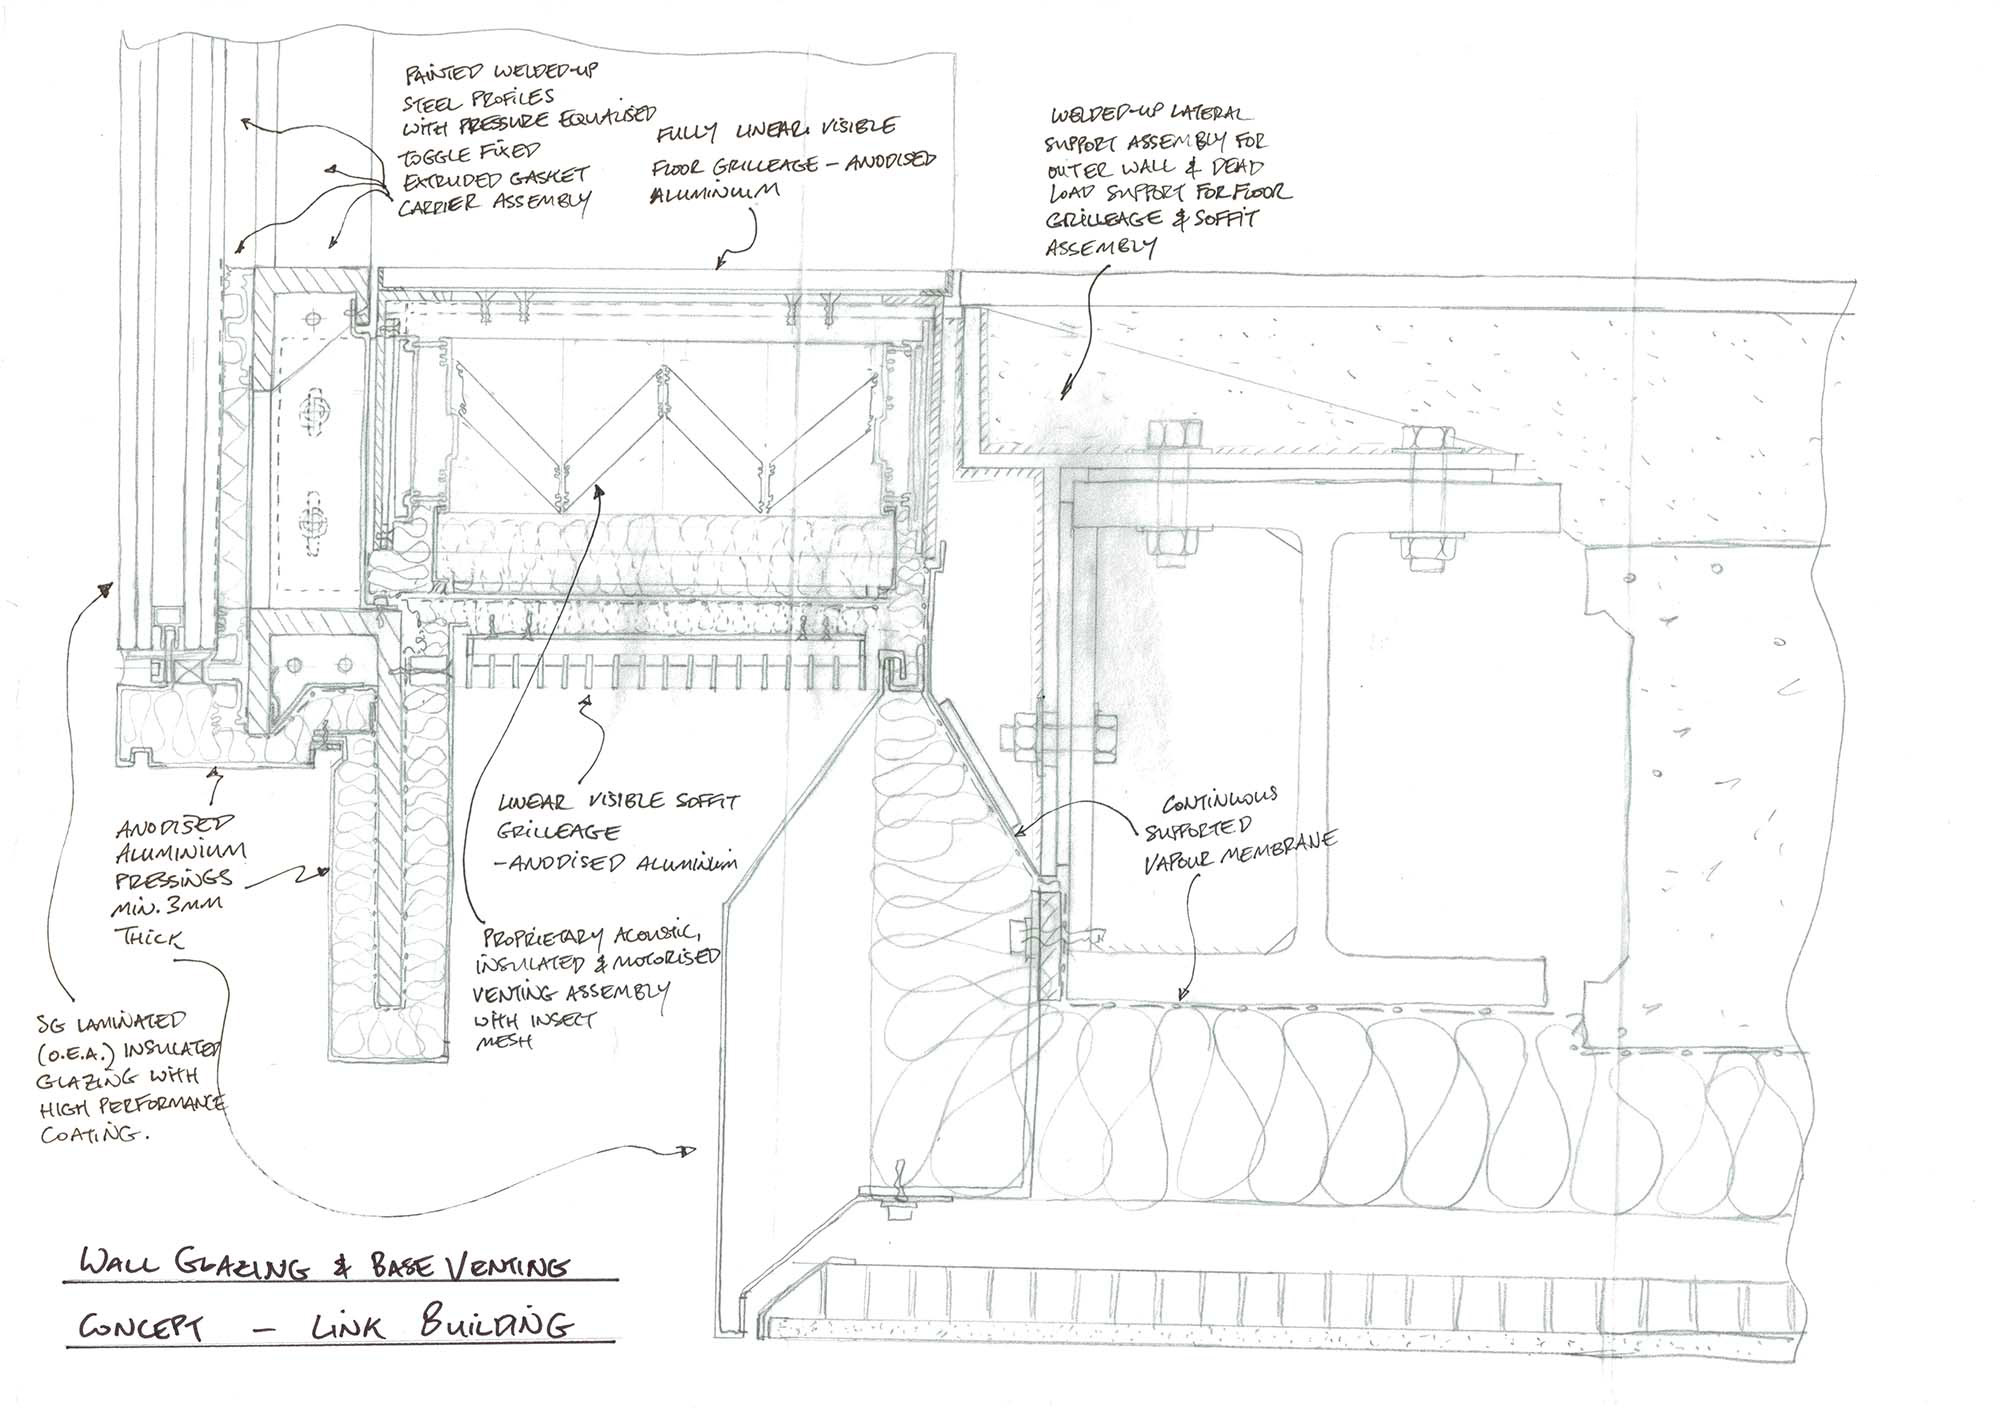 PAINTED WELDED-UP
STEEL PROFILES
WITH PRESSURE EQUALISED
TOGGLE FIXED
EXTRUDED GASKET
CARRIER ASSEMBLY
FULLY LINEAR VISIBLE
FLOOR GRILLEAGE - ANODISED
ALUMINIUM
WELDED-UP LATERAL
SUPPORT ASSEMBLY FOR
OUTER WALL & DEAD
LOAD SUPPORT FOR FLOOR
GRILLEAGE & SOFFIT
ASSEMBLY
LINEAR VISIBLE SOFFIT
GRILLEAGE
- ANODISED ALUMINIUM
CONTINUOUS
SUPPORTED
VAPOUR MEMBRANE
ANODISED
ALUMINIUM
PRESSINGS
MIN. 3MM
THICK
PROPRIETARY ACOUSTIC,
INSULATED & MOTORISED
VENTING ASSEMBLY
WITH INSECT
MESH
SG LAMINATED
(O.E.A.) INSULATED
GLAZING WITH
HIGH PERFORMANCE
COATING.
WALL GLAZING & BASE VENTING
CONCEPT - LINK BUILDING